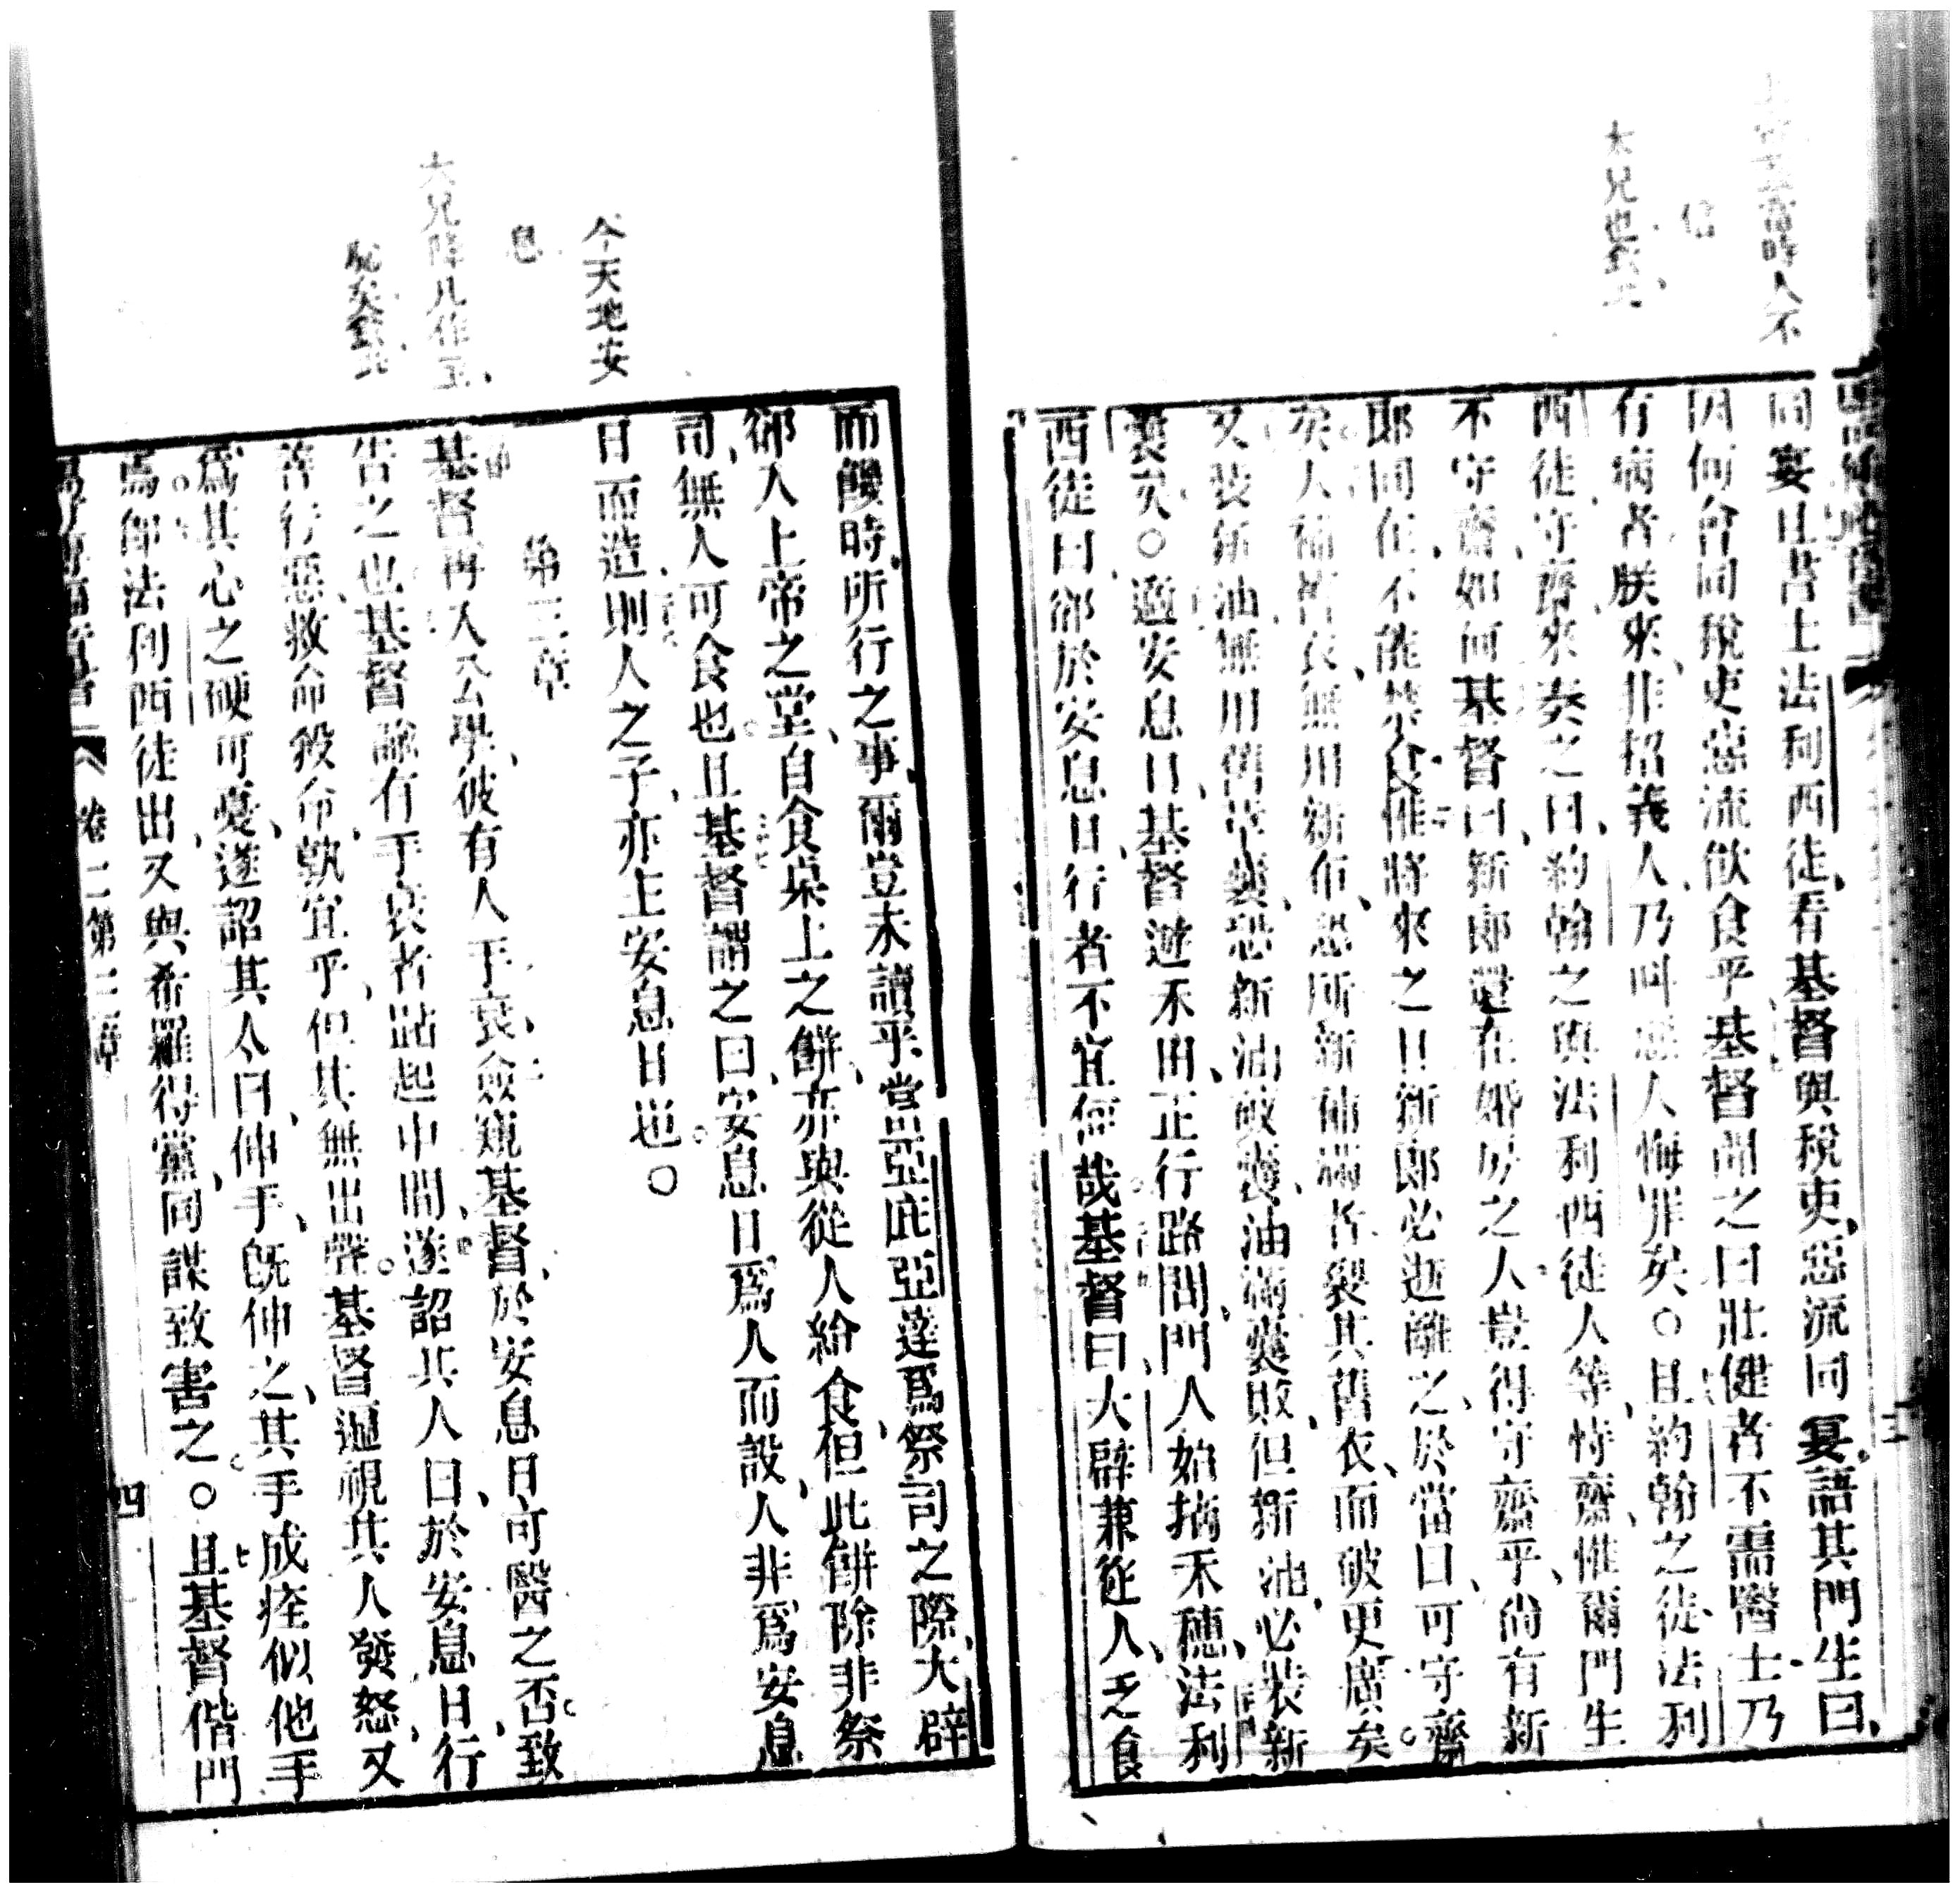 時人不
信
大兄也欽此
同宴且書士法利西徒看基督與稅吏惡流同宴語其門生曰
因何會同稅吏惡流飲食乎基督聞之曰壯健者不需醫士乃
有病者朕來非招義人乃叫惡人悔罪矣〇且約翰之徒法利
西徒守齋來奏之曰約翰之與法利西徒人等恃齋惟爾門生
不守齋如何基督曰新郎還在婚房之人豈得守齋乎尚有新
郎同在不能禁食惟將來之日新郎必逝離之於當日可守齋
矣人補舊衣無用新布恐所新補滿者裂其舊衣而破更廣矣
又裝新油無用舊革囊恐新油破囊油滿囊敗但新油必裝新
囊矣〇適安息日基督遊禾田正行路間門人始摘禾穗法利
西徒曰郤於安息日行者不宜何哉基督曰大辟兼從人乏食
今天地安
息
大兄降凡作主
脫災欽此
而饑時所行之事爾豈未讀乎當亞庇亞達爲祭司之際大辟
郤入上帝之堂自食桌上之餅亦與從人給食但此餅除非祭
司無人可食也且基督謂之曰安息日爲人而設人非爲安息
日而造則人之子亦主安息日也〇
第三章
基督再入公學彼有人手衰僉窺基督於安息日可醫之否致
告之也基督諭有手衰者跕起中間遂詔其人曰於安息日行
善行惡救命殺命孰宜乎但其無出聲基督遍視其人發怒又
爲其心之硬可憂遂詔其人曰伸手旣伸之其手成痊似他手
焉卽法利西徒出又與希羅得黨同謀致害之〇且基督偕門
卷二第三章
四